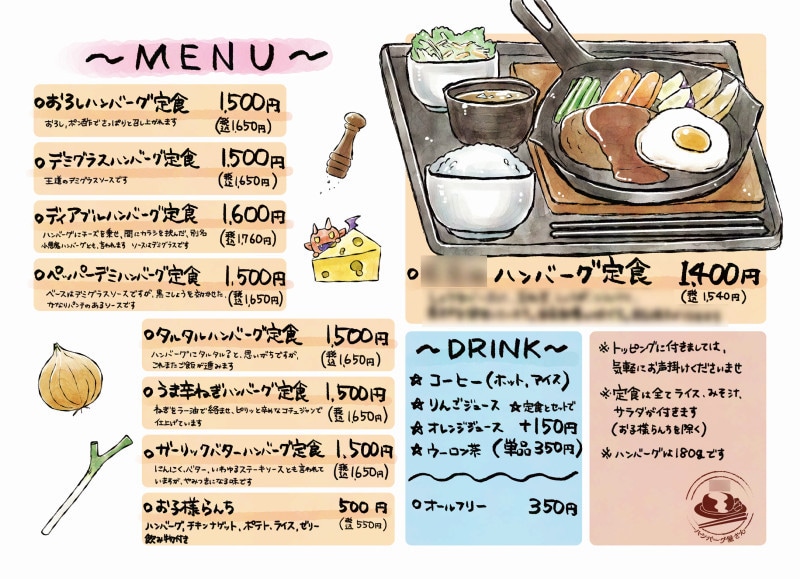 ～MENU～
○おろしハンバーグ定食 1,500円
おろし、ポン酢でさっぱりと召し上がれます (税込1,650円)
○デミグラスハンバーグ定食 1,500円
王道のデミグラスソースです (税込1,650円)
○ディアブルハンバーグ定食 1,600円
ハンバーグにチーズを乗せ、間にカラシを挟んだ、別名 (税込1,760円)
小悪魔ハンバーグとも、言われます ソースはデミグラスです
○ペッパーデミハンバーグ定食 1,500円
ベースはデミグラスソースですが、黒こしょうを効かせた、 (税込1,650円)
かなりパンチのあるソースです
○タルタルハンバーグ定食 1,500円
ハンバーグにタルタル？と、思いがちですが、 (税込1,650円)
これまたご飯が進みます
○うま辛ねぎハンバーグ定食 1,500円
ねぎをラー油で絡ませ、ピリッと辛めなコチュジャンで (税込1,650円)
仕上げています
○ガーリックバターハンバーグ定食 1,500円
にんにく、バター、いわゆるステーキソースとも言われて (税込1,650円)
いますが、やみつきになる味です
○お子様らんち 500円
ハンバーグ、チキンナゲット、ポテト、ライス、ゼリー (税込550円)
飲み物付き
○ ハンバーグ定食 1,400円
(税込1,540円)
～DRINK～
☆コーヒー(ホット、アイス)
☆りんごジュース ☆定食とセットで
☆オレンジジュース +150円
☆ウーロン茶 (単品350円)
○オールフリー 350円
※トッピングに付きましては、
気軽にお声掛けくださいませ
※定食は全てライス、みそ汁、
サラダが付きます
(お子様らんちを除く)
※ハンバーグは180gです
ハンバーグ屋さん